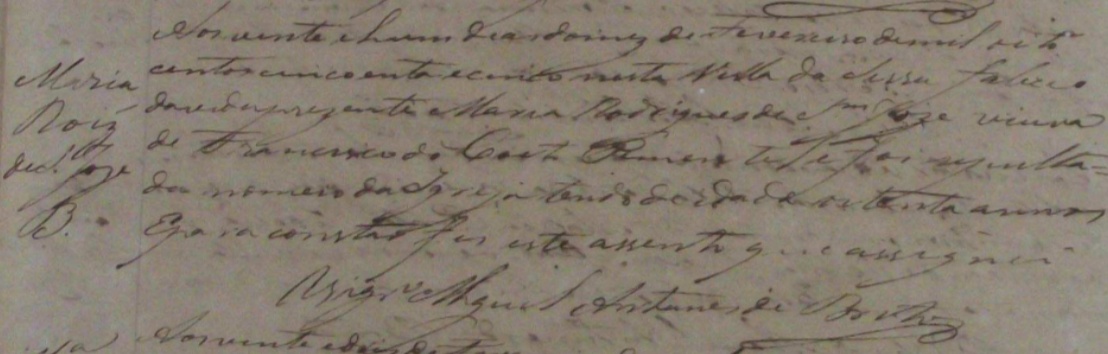 Maria
Roiz
de S. Joze
B.
Aos vinte e hum dias do mez de Fevereiro de mil oito
centos cincoenta e cinco nesta Villa da falleceo
da vida prezente Maria Rodrigues de Sam Joze viuva
de Francisco da Costa Pimentel e foi sepulta=
da no meio da Igreja tendo de idade oitenta annos
E para constar fiz este assento que assignei
Miguel Antunes de
Aos vinte e